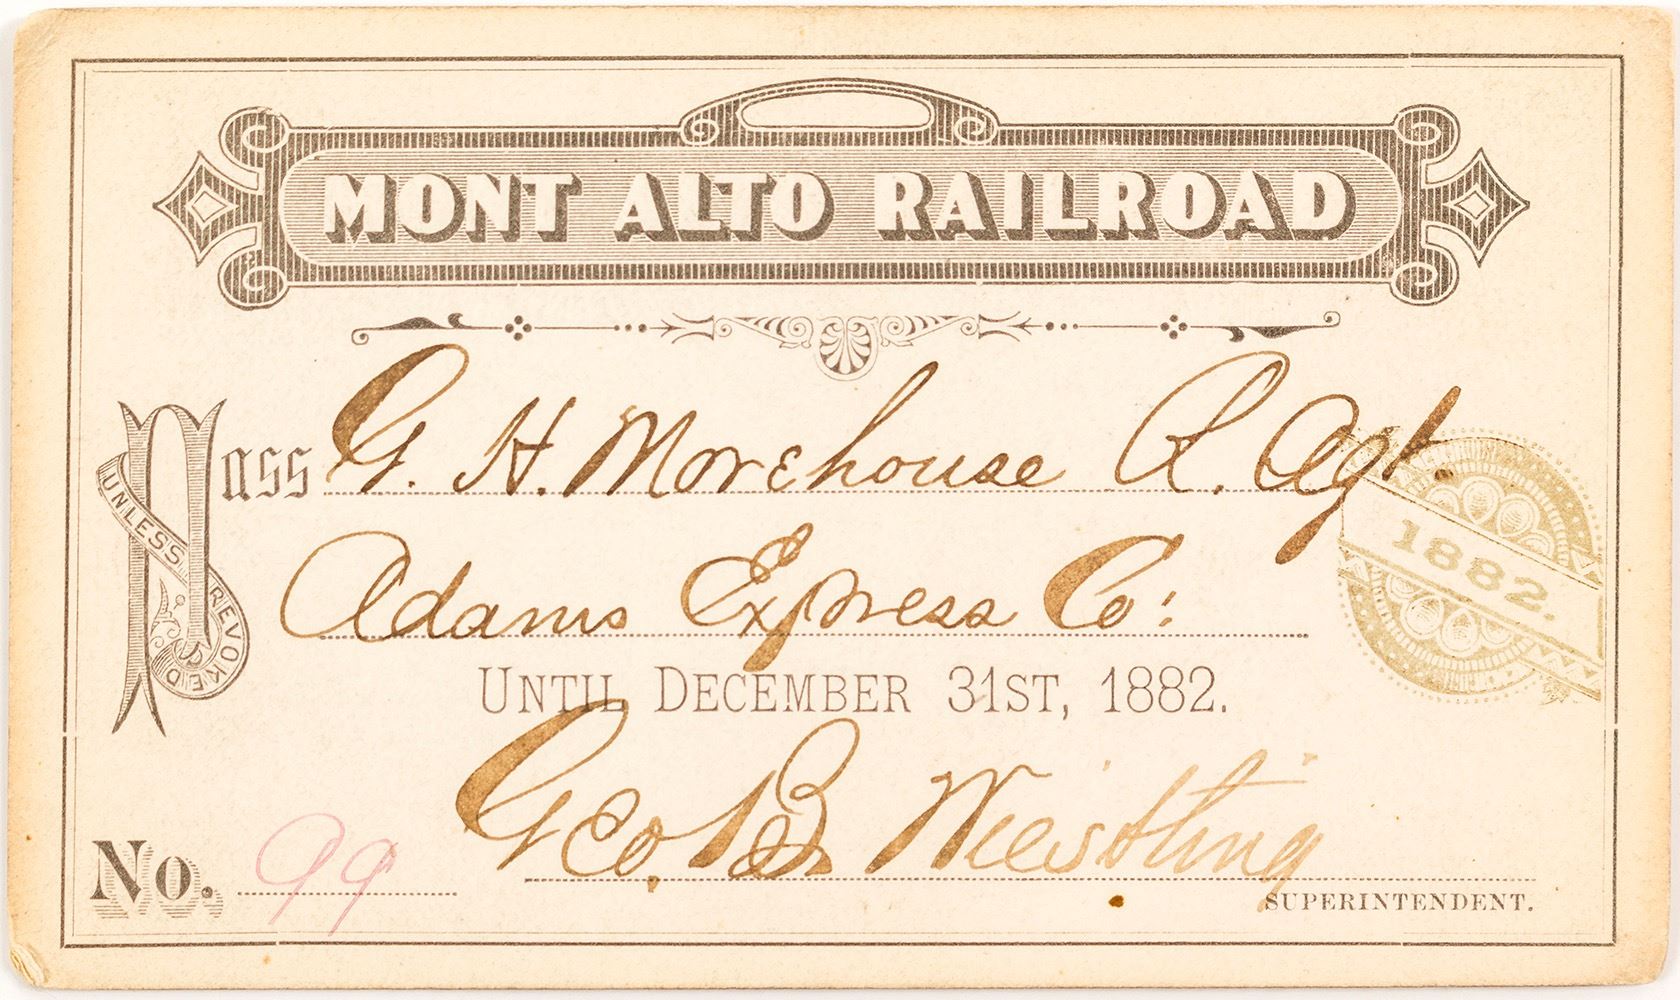 MONT ALTO RAILROAD
Pass G. H. Morehouse R. Agt.
UNLESS REVOKED
Adams Express Co:
1882.
UNTIL DECEMBER 31ST, 1882.
Geo. B. Wiestling
No. 99
SUPERINTENDENT.